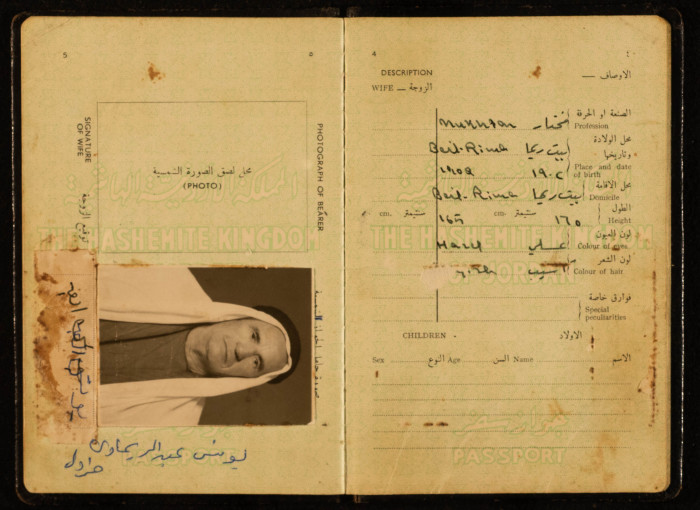 5
SIGNATURE OF WIFE
توقيع الزوجة
محل لصق الصورة الشمسية
(PHOTO)
PHOTOGRAPH OF BEARER
المملكة الأردنية الهاشمية
THE HASHEMITE KINGDOM
يونس عبد الريماوي
4
٤
DESCRIPTION
الاوصاف —
WIFE — الزوجة
الصنعة او الحرفة
مختار
mukhtar
Profession
محل الولادة
وتاريخها
بيت ريما
Beit-Rima
Place and date of birth
١٩٠٢
محل الاقامة
بيت ريما
Beit-Rima
Domicile
الطول
cm. سنتيمتر
سنتيمتر ١٦٥
Height
لون العيون
عسلي
Hazel
Colour of eyes
لون الشعر
Colour of hair
فوارق خاصة
Special peculiarities
THE HASHEMITE KINGDOM
OF JORDAN
CHILDREN
الاولاد
Sex النوع Age السن Name الاسم
جواز سفر
PASSPORT